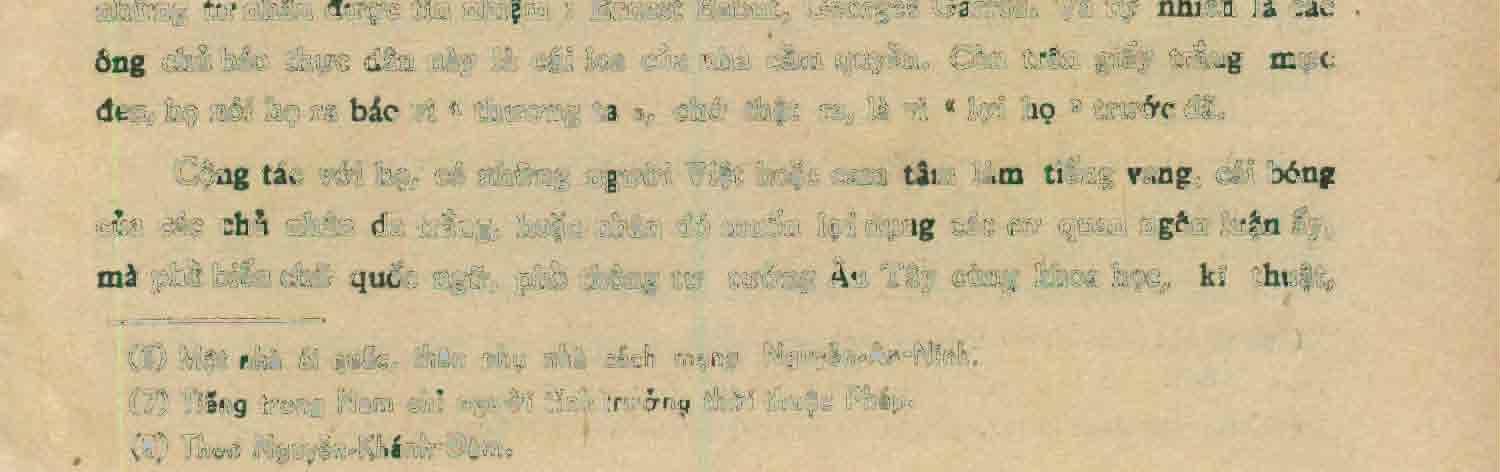 những tư nhân được tín nhiệm : Ernest Babut, Georges Garros. Và tự nhiên là các
ông chủ báo thực dân này là cái loa của nhà cầm quyền. Còn trên giấy trắng mực
đen, họ nói họ ra báo vì “ thương ta ”, chớ thật ra, là vì “ lợi họ ” trước đã.
Cộng tác với họ, có những người Việt hoặc cam tâm làm tiếng vang, cái bóng
của các chủ nhân da trắng, hoặc nhân đó muốn lợi dụng các cơ quan ngôn luận ấy,
mà phổ biến chữ quốc ngữ, phổ thông tư tưởng Âu Tây cùng khoa học, kĩ thuật,
(6) Một nhà ái quốc, thân phụ nhà cách mạng Nguyễn-An-Ninh.
(7) Tiếng trong Nam chỉ người tỉnh trưởng thời thuộc Pháp.
(8) Theo Nguyễn-Khánh-Đàm.